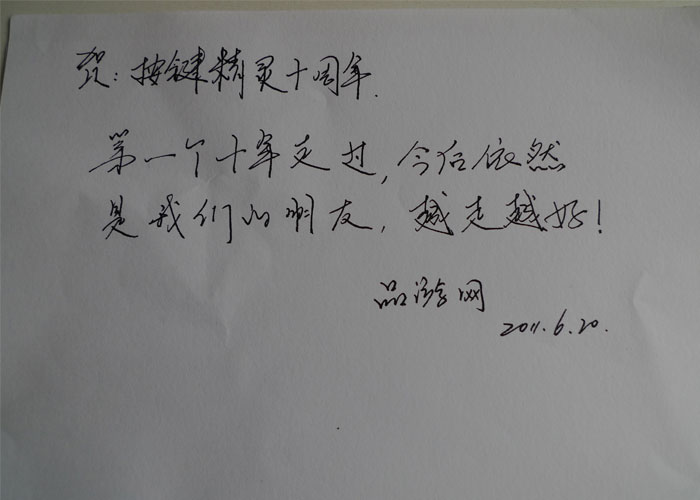 贺：按键精灵十周年.
第一个十年走过,今后依然
是我们的朋友,越走越好!
品游网
2011.6.20.